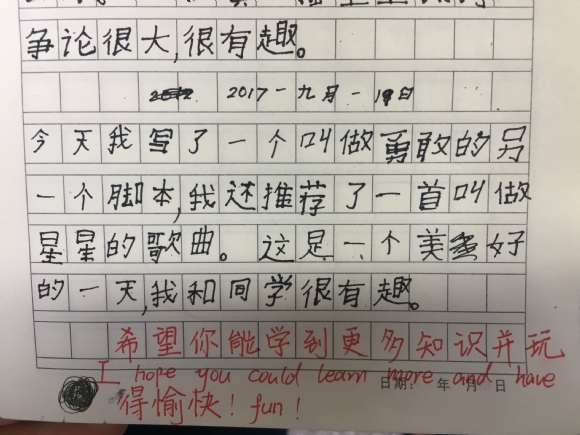 争论很大,很有趣。
2017-九月-19日
今天我写了一个叫做勇敢的另
一个脚本,我还推荐了一首叫做
星星的歌曲。这是一个美好
的一天,我和同学很有趣。
希望你能学到更多知识并玩
I hope you could learn more and have
日期: 年 月 日
得愉快! fun!